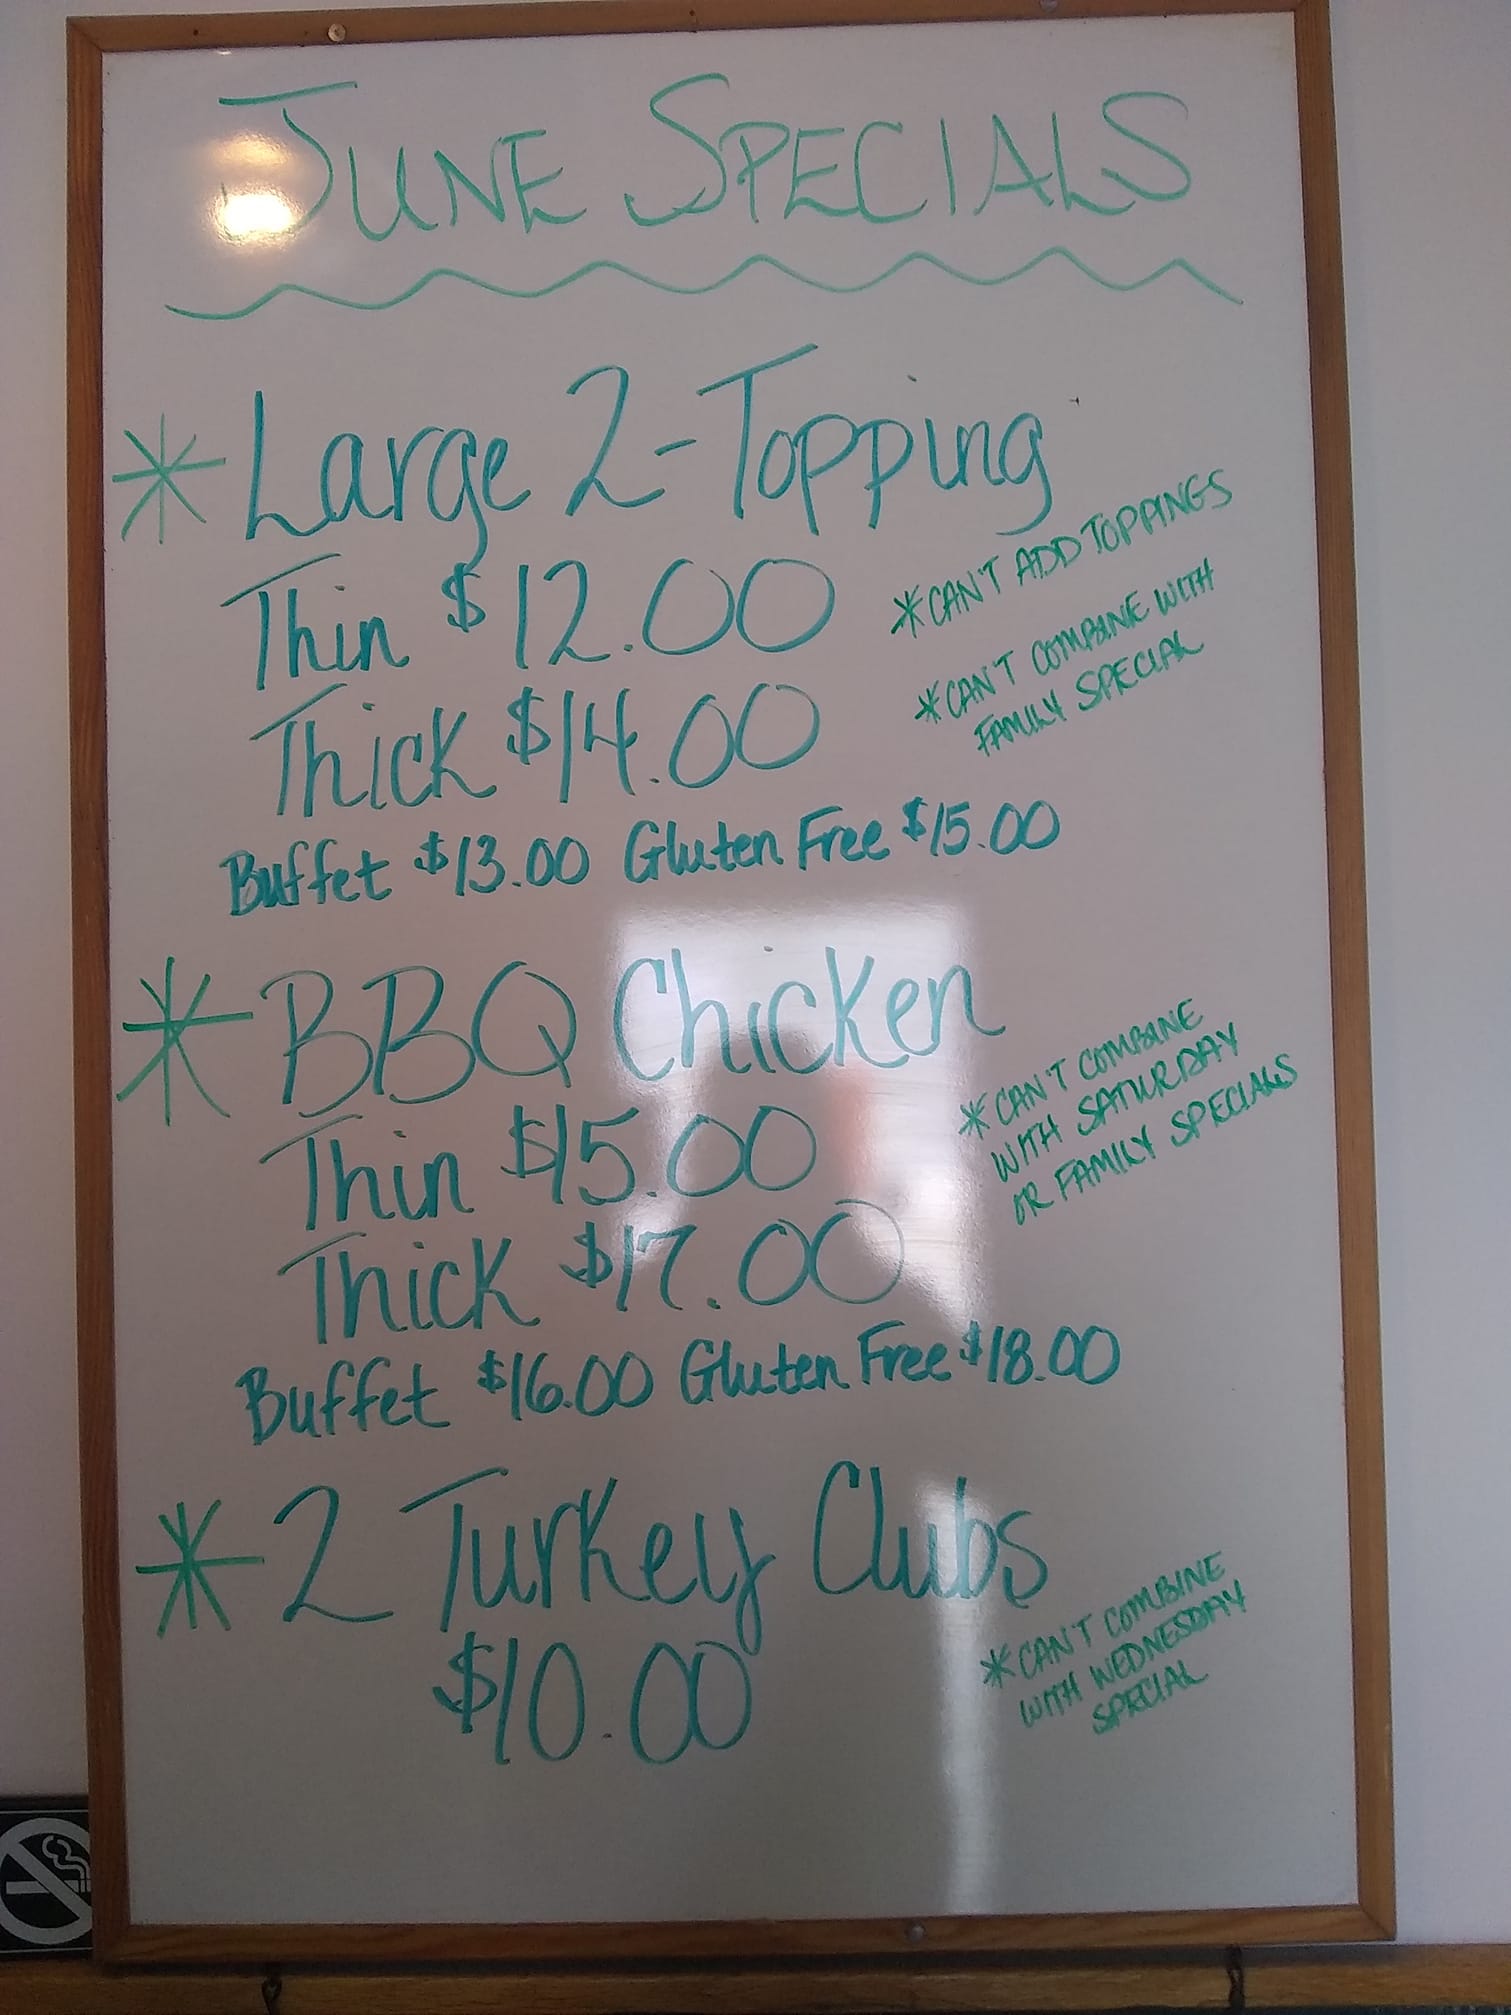 JUNE SPECIALS
* Large 2-Topping
Thin $12.00
Thick $14.00
*CAN'T ADD TOPPINGS
*CAN'T COMBINE WITH
FAMILY SPECIAL
Buffet $13.00 Gluten Free $15.00
* BBQ Chicken
Thin $15.00
Thick $17.00
*CAN'T COMBINE
WITH SATURDAY
OR FAMILY SPECIALS
Buffet $16.00 Gluten Free $18.00
* 2 Turkey Clubs
$10.00
*CAN'T COMBINE
WITH WEDNESDAY
SPECIAL